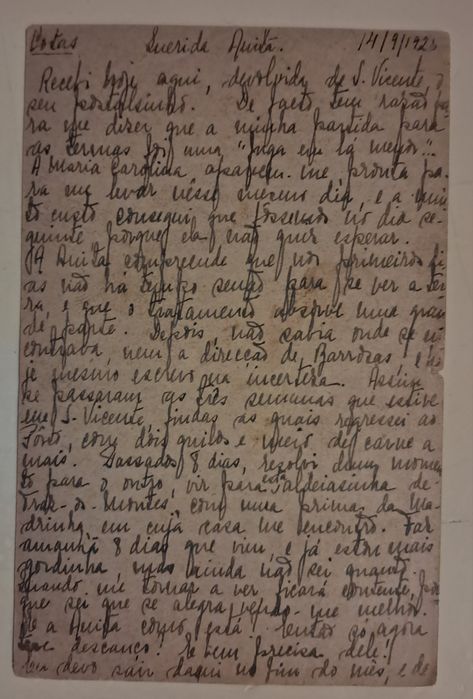 Cotas Querida Anita. 14/9/192
Recebi hoje aqui, devolvido de S. Vicente, o
seu postalsinho. De facto, tem razão pa-
ra me dizer que a minha partida para
as termas foi uma "fuga em lá menor"...
A Maria Carolina, appareceu-me prompta pa-
ra me levar nesse mesmo dia, e a mui-
to custo consegui que fossemos no dia se-
guinte porque ela não quiz esperar.
A Anita comprehende que nos primeiros di-
as não há tempo senão para se ver a ter-
ra, e que o tratamento absorve uma gran-
de parte. Depois, não sabia onde se en-
contrava, nem a direcção de Barrozas, e ho-
je mesmo escrevo na incerteza. Assim
se passaram as três semanas que estive
em S. Vicente, findas as quais regressei ao
Porto, com dois quilos e meio de carne a
mais. Passados 8 dias, resolvi dum momen-
to para o outro, vir para esta aldeiasinha de
Traz-os-Montes, com uma prima da Ma-
drinha em cuja casa me encontro. Faz
amanhã 8 dias que vim, e já estou mais
gordinha, mas ainda não sei quanto.
Quando me tornar a ver ficará contente, por-
que sei que se alegra vendo-me melhor.
E a Anita como está? Então só agora
descanço! Se bem precisa dele!
Eu devo sair daqui no fim do mês, e de